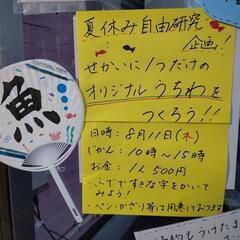 夏休み自由研究
企画!
せかいに1つだけの
オリジナルうちわを
つくろう!!
魚
日時:8月11日(木)
じかん:10時~15時
お金:1人500円
・ふでですきな字をかいて
みよう!
・ペン・かざり等は用意しております